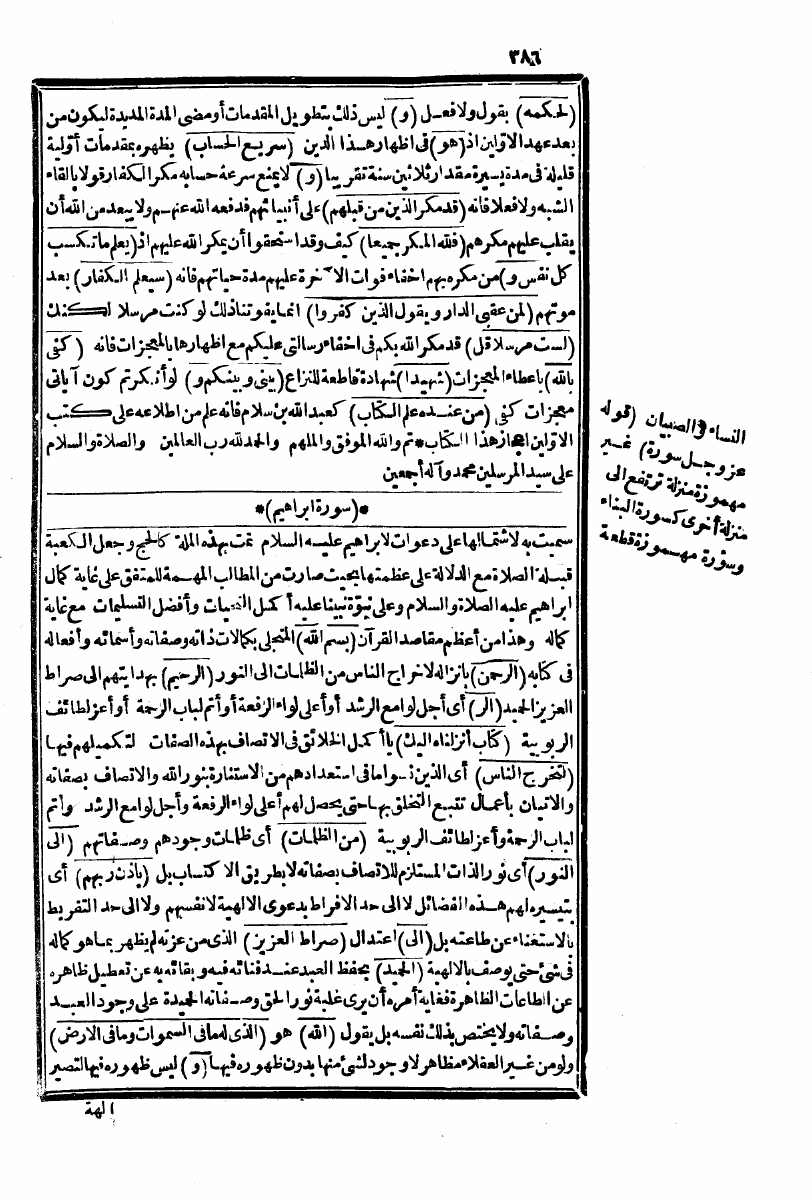 ٣٨٦
(لحكمه) بقول ولا فعل (و) ليس ذلك بتطويل المقدمات أو مضى المدة المديدة ليكون من
بعد عهد الاولين اذ (هو) فى اظهار هذا الدين (سريع الحساب) يظهره بمقدمات أولية
قليلة فى مدة يسيرة مقدار ثلاثين سنة تقريبا (و) لا يمنع سرعة حسابه مكر الكفار قولا بالقاء
الشبه ولا فعلا فانه (قد مكر الذين من قبلهم) على أنبيائهم فدفعه الله عنهم ولا يبعد من الله أن
يقلب عليهم مكرهم (فلله المكر جميعا) كيف وقد استحقوا أن يمكر الله عليهم اذ (يعلم ما تكسب
كل نفس و) من مكره بهم اخفاء فوات الآخرة عليهم مدة حياتهم فانه (سيعلم الكفار) بعد
موتهم (لمن عقبى الدار و يقول الذين كفروا) انما يفوتنا ذلك لو كنت مرسلا لكنك
(لست مرسلا قل) قد مكر الله بكم فى اخفاء رسالتى عليكم مع اظهارها بالمعجزات فانه (كفى
بالله) باعطاء المعجزات (شهيدا) شهادة قاطعة للنزاع (بينى وبينكم و) لو أنكرتم كون آياتى
معجزات كفى (من عنده علم الكتاب) كعبد الله بن سلام فانه علم من اطلاعه على كتب
الاولين اعجاز هذا الكتاب * تم والله الموفق والملهم والحمد لله رب العالمين والصلاة والسلام
على سيد المرسلين محمد وآله أجمعين
*(سورة ابراهيم)*
سميت به لاشتمالها على دعوات لابراهيم عليه السلام تمت بهذه الملة كالحج وجعل الكعبة
قبلة الصلاة مع الدلالة على عظمتها بحيث صارت من المطالب المهمة للمتفق على غاية كمال
ابراهيم عليه الصلاة والسلام وعلى نبوة نبينا عليه أكمل التحيات وأفضل التسليمات مع غاية
كماله وهذا من أعظم مقاصد القرآن (بسم الله) المتجلى بكمالات ذاته وصفاته وأسمائه وأفعاله
فى كتابه (الرحمن) بانزاله لاخراج الناس من الظلمات الى النور (الرحيم) بهدايتهم الى صراط
العزيز الحميد (الر) أى أجل لوامع الرشد أو أعلى لواء الرفعة أو أتم لباب الرحمة أو أعز لطائف
الربوبية (كتاب أنزلناه اليك) يا أكمل الخلائق فى الاتصاف بهذه الصفات لتكميلهم فيها
(لتخرج الناس) أى الذين نسوا ما فى استعدادهم من الاستنارة بنور الله والاتصاف بصفاته
والاتيان بأعمال تتبع التخلق بها حتى يحصل لهم أعلى لواء الرفعة وأجل لوامع الرشد وأتم
لباب الرحمة وأعز لطائف الربوبية (من الظلمات) أى ظلمات وجودهم وصفاتهم (الى
النور) أى نور الذات المستلزم للاتصاف بصفاته لا بطريق الاكتساب بل (باذن ربهم) أى
بتيسيره لهم هذه الفضائل لا الى حد الافراط بدعوى الالهية لانفسهم ولا الى حد التفريط
بالاستغناء عن طاعته بل (الى) اعتدال (صراط العزيز) الذى من عزته لم يظهر بما هو كماله
فى شئ حتى يوصف بالالهية (الحميد) بحفظ العبد عند فنائه فيه وبقائه به عن تعطيل ظاهره
عن الطاعات الظاهرة فغاية أمره أن يرى غلبة نور الحق وصفاته الحميدة على وجود العبد
وصفاته ولا يختص بذلك نفسه بل يقول (الله) هو (الذى له ما فى السموات وما فى الارض)
ولو من غير العقلاء مظاهر لا وجود لشئ منها بدون ظهوره فيها (و) ليس ظهوره فيها لتصير
الهة
النساء والصبيان (قوله
عز وجل سورة) غير
مهموزة منزلة ترتفع الى
منزلة أخرى كسورة البناء
وسؤرة مهموزة قطعة